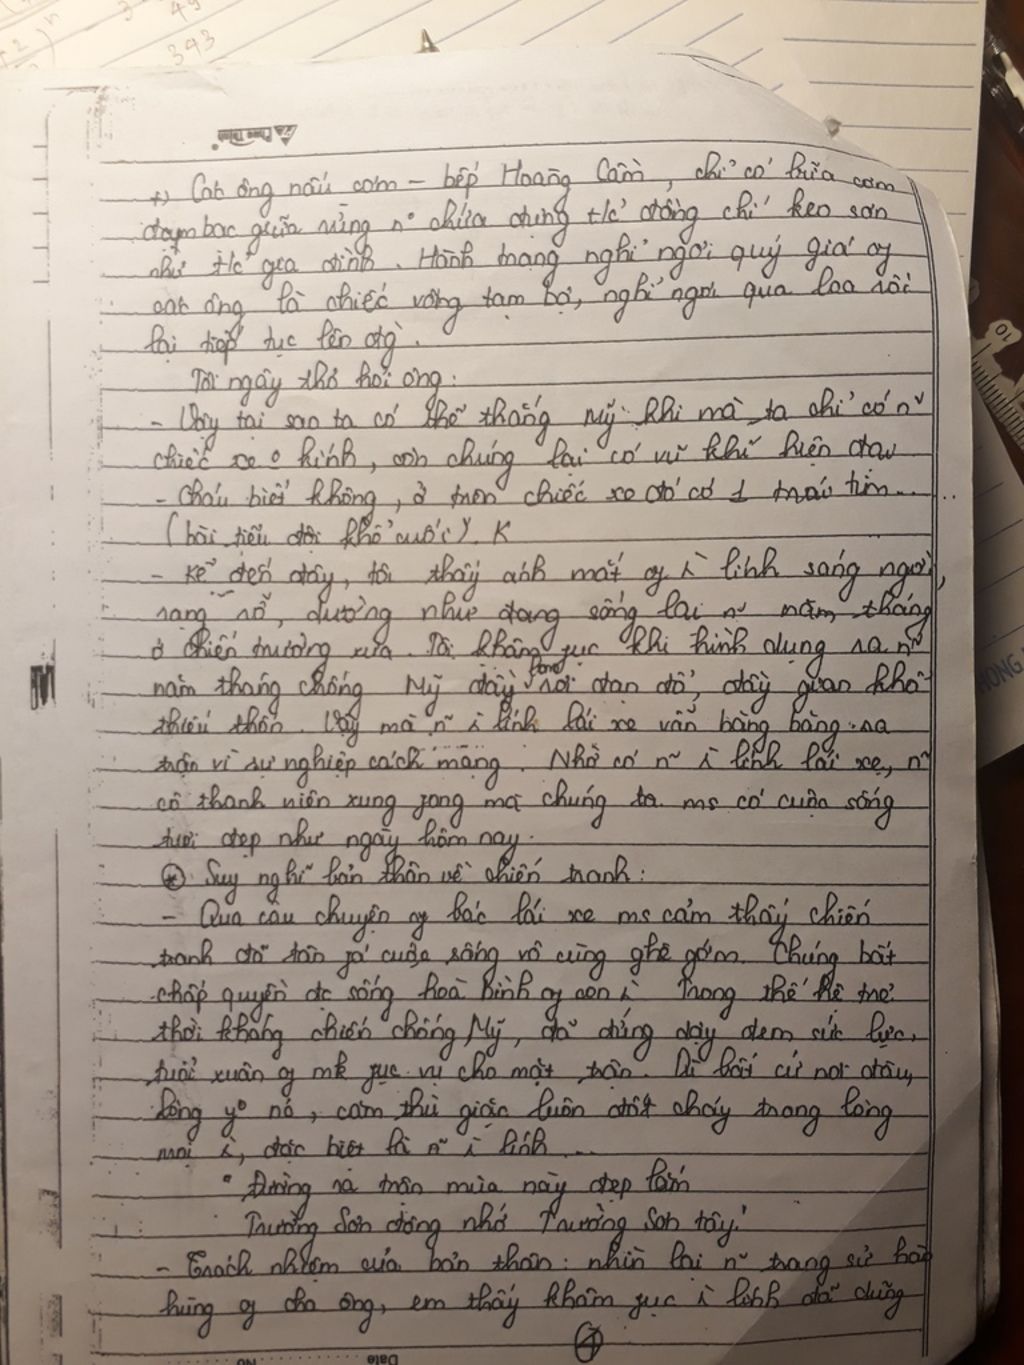 +) Các ông nấu cơm - bếp Hoàng Cầm, chỉ có bữa cơm
đạm bạc giữa rừng n° chứa chung t/c' đồng chí keo sơn
như t/c' gia đình. Hành trang nghỉ ngơi quý giá cỵ
các ông là chiếc võng tạm bợ, nghỉ ngơi qua loa rồi
lại tiếp tục lên đg`.
Tôi ngây thơ hỏi ông:
- Vậy tại sao ta có thể thắng Mỹ khi mà ta chỉ có n~
chiếc xe ° kính, còn chúng lại có vũ khí hiện đại
- Cháu biết không, ở trên chiếc xe đó có 1 trái tim...
(bài tiểu đội khổ cuối). K
- Kể đến đây, tôi thấy ánh mắt cỵ i` lính sáng ngời,
rạng rỡ, dường như đang sống lại n~ năm tháng
ở chiến trường xưa. Tôi khâm fục khi hình dung ra n~
năm tháng chống Mỹ đầy rơi đạn đổ, đầy gian khổ
thiếu thốn. Vậy mà n~ i` lính lái xe vẫn hăng hăng ra
trận vì sự nghiệp cách mạng. Nhờ có n~ i` lính lái xe, n~
cô thanh niên xung fong mà chúng ta ms có cuộc sống
tươi đẹp như ngày hôm nay.
* Suy nghĩ bản thân về chiến tranh:
- Qua câu chuyện cỵ bác lái xe ms cảm thấy chiến
tranh đã tàn fá cuộc sống vô cùng ghê gớm. Chúng bất
chấp quyền đc sống hoà bình cỵ con i` Trong thế hệ trẻ
thời kháng chiến chống Mỹ, đã đứng dậy đem sức lực,
tuổi xuân cỵ mk fục vụ cho mặt trận. Dì bất cứ nơi đâu,
lòng y° nó, căm thù giặc luôn đốt cháy trong lòng
mọi i`, đặc biệt là n~ i` lính ...
" Đường ra trận mùa này đẹp lắm
Trường Sơn đông nhớ Trường Sơn tây."
- Trách nhiệm của bản thân: nhìn lại n~ trang sử hào
hùng cỵ cha ông, em thấy khâm fục i` lính đã dũng
4
Date
No